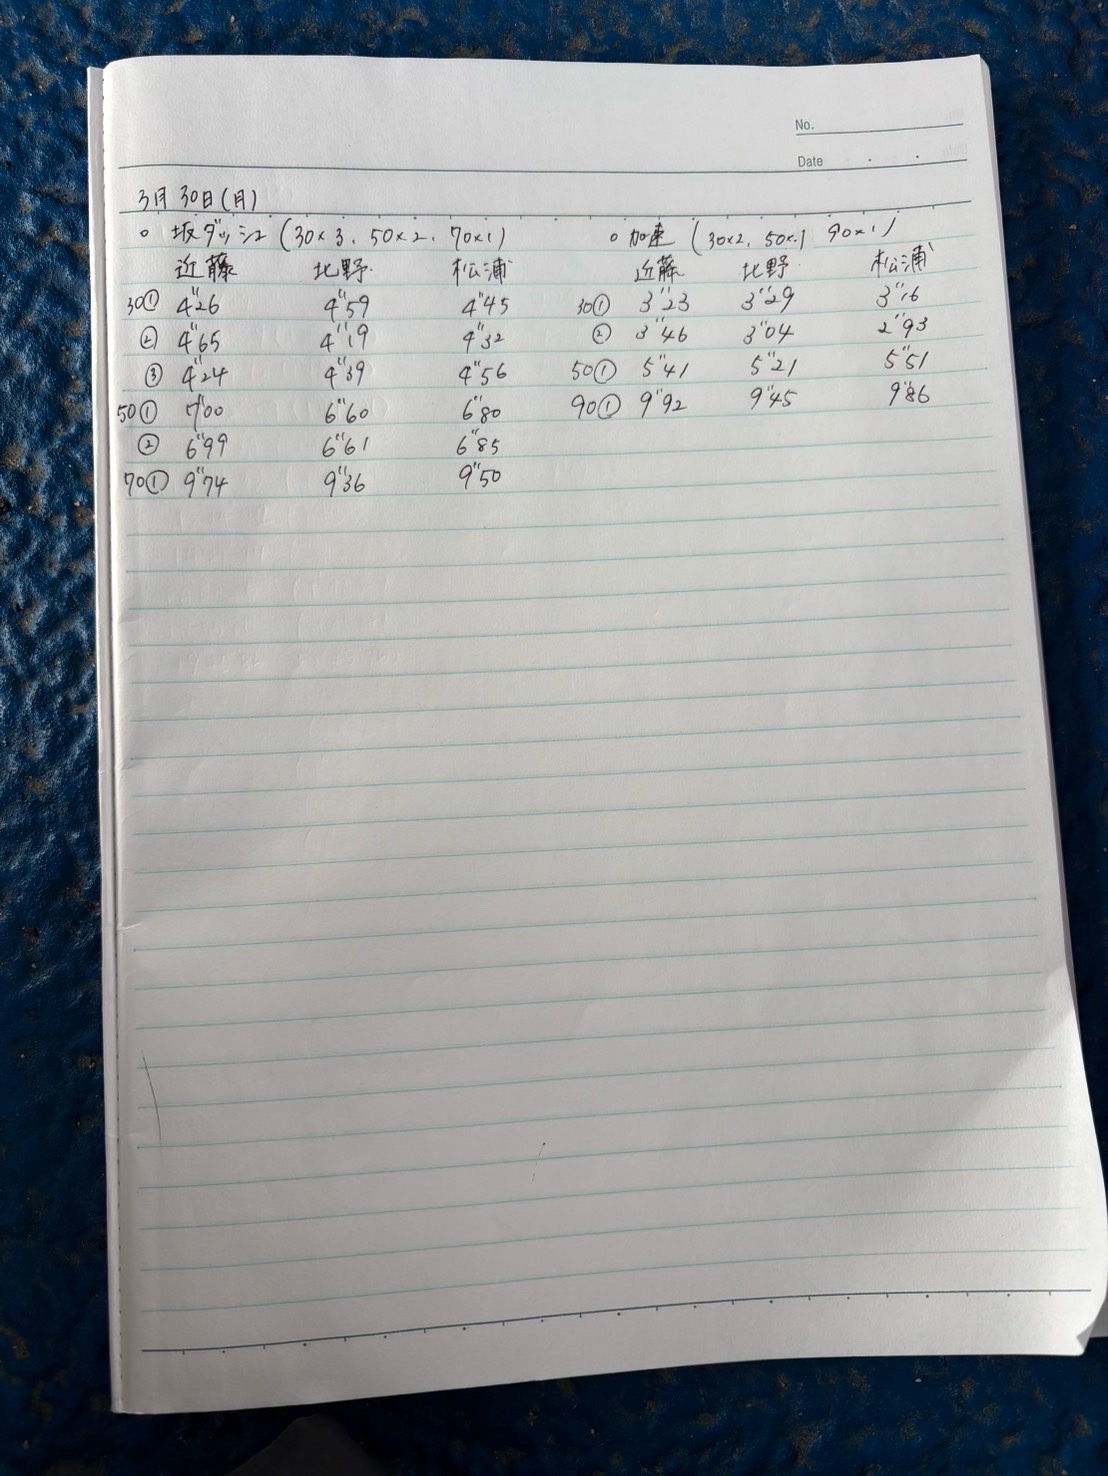 No.
Date
3月30日(月)
○ 坂ダッシュ (30×3、50×2、70×1)
近藤 北野 松浦
30① 4"26 4"59 4"45
② 4"65 4"19 4"32
③ 4"24 4"39 4"56
50① 7"00 6"60 6"80
② 6"99 6"61 6"85
70① 9"74 9"36 9"50
○ 加速 (30×2、50×1 90×1)
近藤 北野 松浦
30① 3"23 3"29 3"16
② 3"46 3"04 2"93
50① 5"41 5"21 5"51
90① 9"92 9"45 9"86